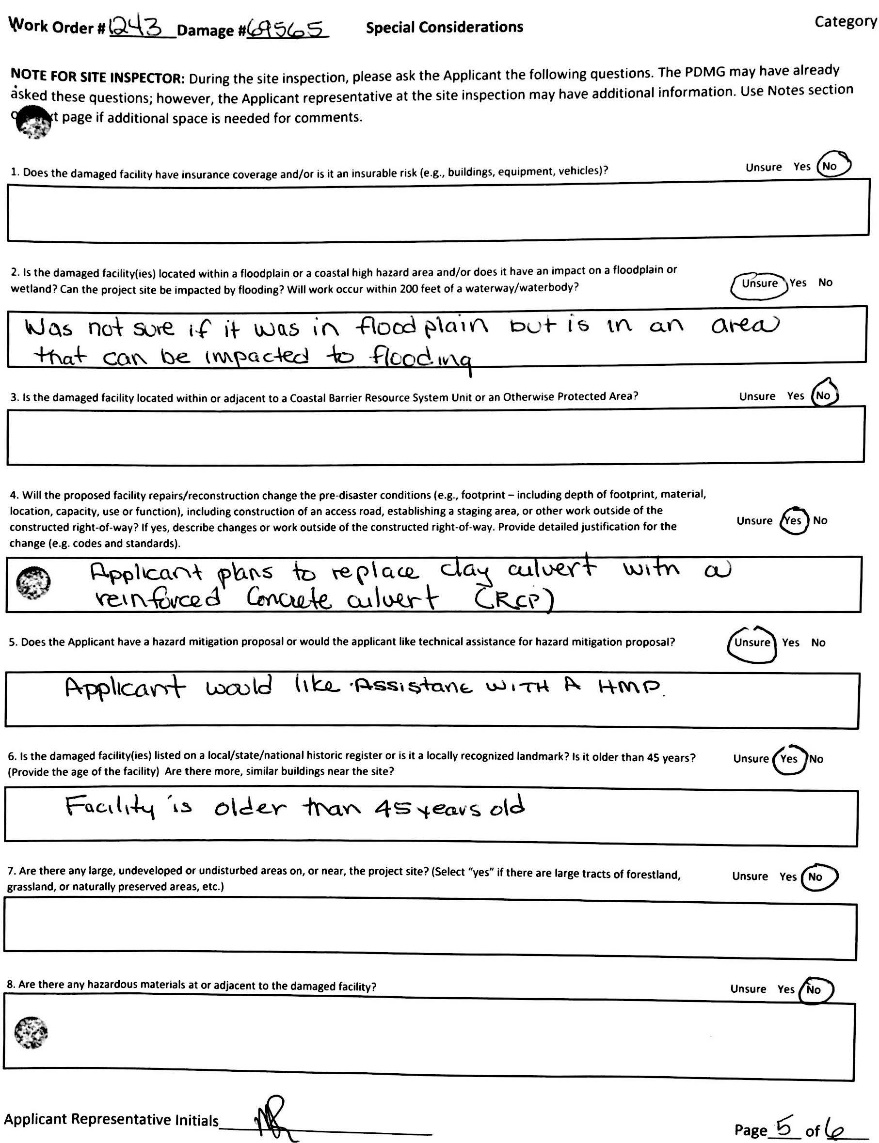 Work Order # 1243 Damage # 69565 Special Considerations Category
NOTE FOR SITE INSPECTOR: During the site inspection, please ask the Applicant the following questions. The PDMG may have already
asked these questions; however, the Applicant representative at the site inspection may have additional information. Use Notes section
page if additional space is needed for comments.
1. Does the damaged facility have insurance coverage and/or is it an insurable risk (e.g., buildings, equipment, vehicles)? Unsure Yes No
2. Is the damaged facility(ies) located within a floodplain or a coastal high hazard area and/or does it have an impact on a floodplain or
wetland? Can the project site be impacted by flooding? Will work occur within 200 feet of a waterway/waterbody? Unsure Yes No
Was not sure if it was in flood plain but is in an area
that can be impacted to flooding
3. Is the damaged facility located within or adjacent to a Coastal Barrier Resource System Unit or an Otherwise Protected Area? Unsure Yes No
4. Will the proposed facility repairs/reconstruction change the pre-disaster conditions (e.g., footprint – including depth of footprint, material,
location, capacity, use or function), including construction of an access road, establishing a staging area, or other work outside of the
constructed right-of-way? If yes, describe changes or work outside of the constructed right-of-way. Provide detailed justification for the Unsure Yes No
change (e.g. codes and standards).
Applicant plans to replace clay culvert with a
reinforced Concrete culvert (RCP)
5. Does the Applicant have a hazard mitigation proposal or would the applicant like technical assistance for hazard mitigation proposal? Unsure Yes No
Applicant would like Assistanc WITH A HMP.
6. Is the damaged facility(ies) listed on a local/state/national historic register or is it a locally recognized landmark? Is it older than 45 years? Unsure Yes No
(Provide the age of the facility) Are there more, similar buildings near the site?
Facility is older than 45 years old
7. Are there any large, undeveloped or undisturbed areas on, or near, the project site? (Select "yes" if there are large tracts of forestland, Unsure Yes No
grassland, or naturally preserved areas, etc.)
8. Are there any hazardous materials at or adjacent to the damaged facility? Unsure Yes No
Applicant Representative Initials
Page 5 of 6